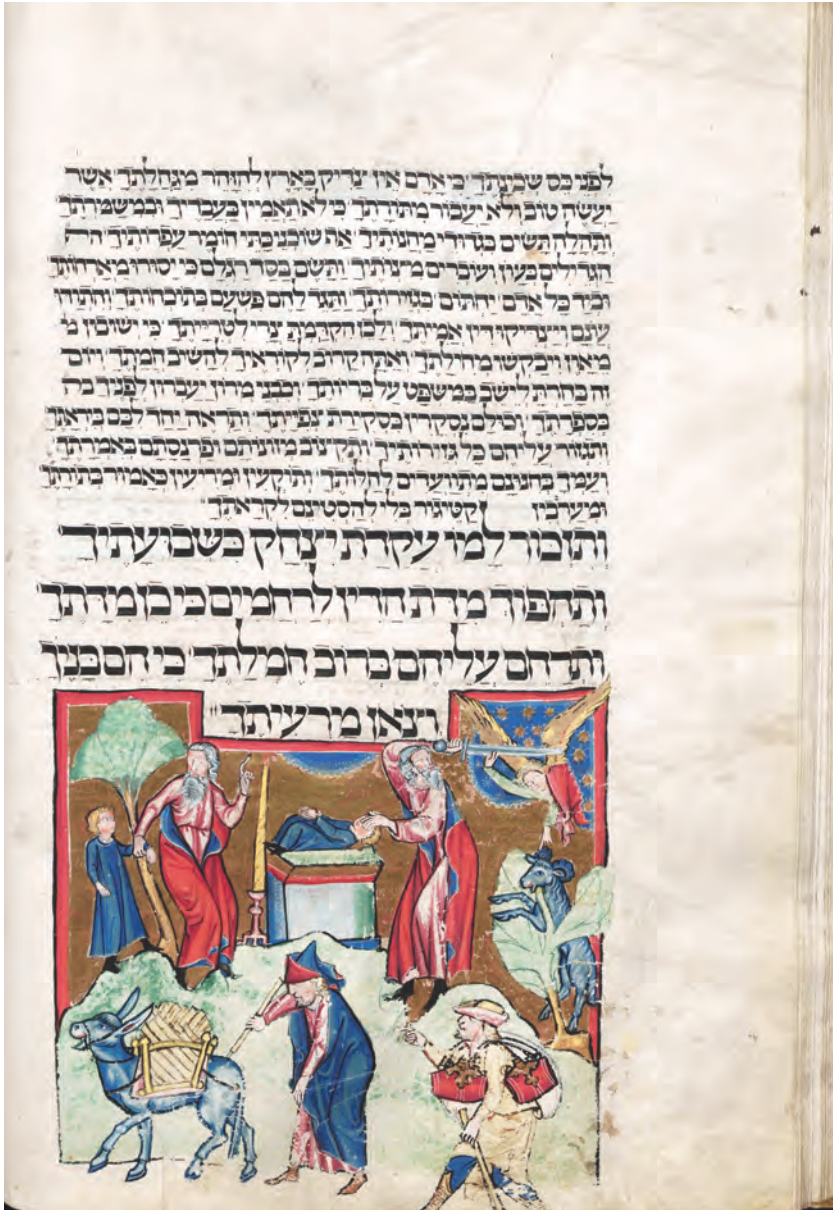 לפני כס שכינתך כי אדם אין צדיק בארץ להזהר מגחלתך אשר
יעשה טוב ולא יעבור מתורתך כי לא תאמין בעבדיך ובמשמרתך
ותהלה תשים בגדודי מחנותיך אף שוכני בתי חומר עפרותיך
הגדולים בעון ועוברים מצותיך ותשם בסד רגלם כי יסורו מארחותיך
וביד כל אדם יחתום בגזירותך ותגד להם פשעם בתוכחותך והתודו
עונם ויצדיקו דין אמיתך ולכן הקדמת צרי לטרייתך כי ישובון
מאון ויבקשו מחילתך ואתה קרוב לקוראיך להשיב חמתך ויום
זה בחרת לישב במשפט על בריותך וכבני מרון יעברון לפניך
בספרתך וכולם נסקרין בסקירת צפייתך ותראה יחד לבם
ותגזור עליהם כל גזירותיך ותקצוב מזונותם ופרנסתם באמרתך
ועמך בחנונם מתוועדים לחלותך ותוקעין ומריעין כאמור בתורתך
ומערבין קטיגור בלי להסטינם לקראתך
ותזכור למו עקדת יצחק כשבועתיך
ותהפוך מדת הדין לרחמים כי כן מדתך
ותרחם עליהם ברוב חמלתך כי הם בניך
וצאן מרעיתך